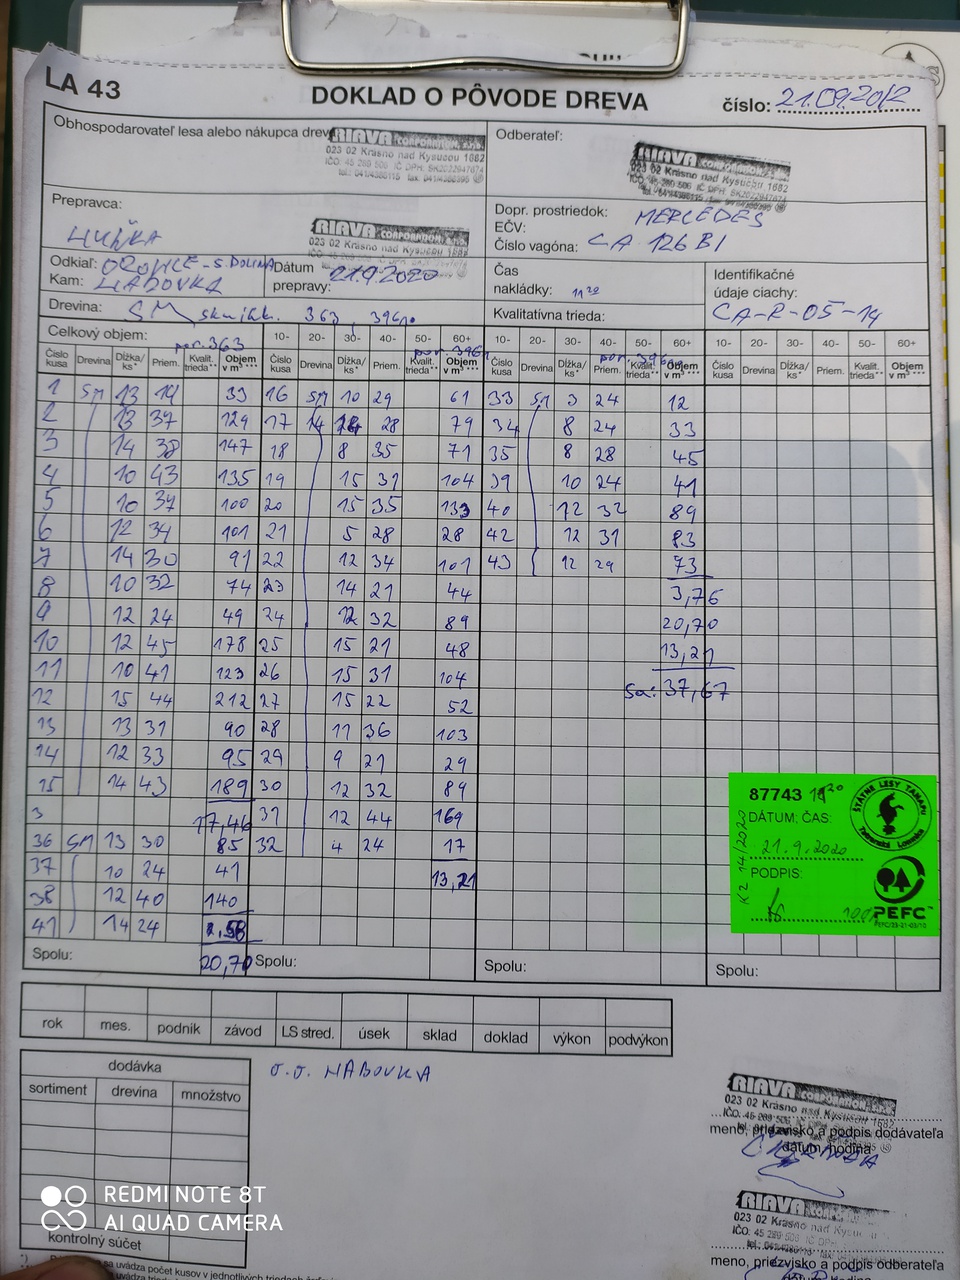 LA 43
DOKLAD O PÔVODE DREVA
číslo: 21.09.2012
Obhospodarovateľ lesa alebo nákupca drev
RIAVA CORPORATION, s.r.o.
023 02 Krásno nad Kysucou 1682
Odberateľ:
RIAVA CORPORATION, s.r.o.
023 02 Krásno nad Kysucou 1682
Prepravca:
RIAVA CORPORATION, s.r.o.
023 02 Krásno nad Kysucou 1682
Dopr. prostriedok: MERCEDES
EČV:
Číslo vagóna: CA 126 BI
Odkiaľ: ORAVICE - S. DOLINA
Kam: HABOVKA
Dátum prepravy: 21.9.2020
Čas nakládky: 11 20
Kvalitatívna trieda:
Identifikačné údaje ciachy:
CA-R-05-14
Drevina: SM 363, 396
Celkový objem: por. 363
10- 20- 30- 40- 50- 60+ 10- 20- 30- 40- 50- 60+ 10- 20- 30- 40- 50- 60+
Číslo kusa Drevina Dĺžka/ks* Priem. Kvalit. trieda** Objem v m³ Číslo kusa Drevina Dĺžka/ks* Priem. Kvalit. trieda** Objem v m³ Číslo kusa Drevina Dĺžka/ks* Priem. Kvalit. trieda** Objem v m³ Číslo kusa Drevina Dĺžka/ks* Priem. Kvalit. trieda** Objem v m³
1 SM 13 19 33 16 SM 10 29 61 33 SM 3 24 12
2 13 37 129 17 14 28 79 34 8 24 33
3 14 38 147 18 8 35 71 35 8 28 45
4 10 43 135 19 15 31 104 39 10 24 41
5 10 37 100 20 15 35 133 40 12 32 89
6 12 34 101 21 5 28 28 42 12 31 83
7 14 30 91 22 12 34 101 43 12 29 73
8 10 32 74 23 14 21 44 3,76
9 12 24 49 24 12 32 89 20,70
10 12 45 178 25 15 21 48 13,21
11 10 41 123 26 15 31 104 sa: 37,67
12 15 44 212 27 15 22 52
13 13 31 90 28 11 36 103
14 12 33 95 29 9 21 29
15 14 43 189 30 12 32 89
3 17,46 31 12 44 169
36 SM 13 30 85 32 4 24 17
37 10 24 41 13,21
38 12 40 140
41 14 24 2,58
Spolu: 20,70 Spolu: Spolu: Spolu:
87743 11 20
DÁTUM: ČAS:
21.9.2020
PODPIS:
K2 14/2020
ŠTÁTNE LESY TANAPU
Tatranská Lomnica
PEFC™
rok mes. podnik závod LS stred. úsek sklad doklad výkon podvýkon
dodávka
sortiment drevina množstvo
kontrolný súčet
O.O. HABOVKA
RIAVA CORPORATION, s.r.o.
023 02 Krásno nad Kysucou 1682
meno, priezvisko a podpis dodávateľa
dátum, hodina
RIAVA CORPORATION
023 02 Krásno nad Kysucou 1682
meno, priezvisko a podpis odberateľa
sa uvádza počet kusov v jednotlivých triedach
REDMI NOTE 8T
AI QUAD CAMERA